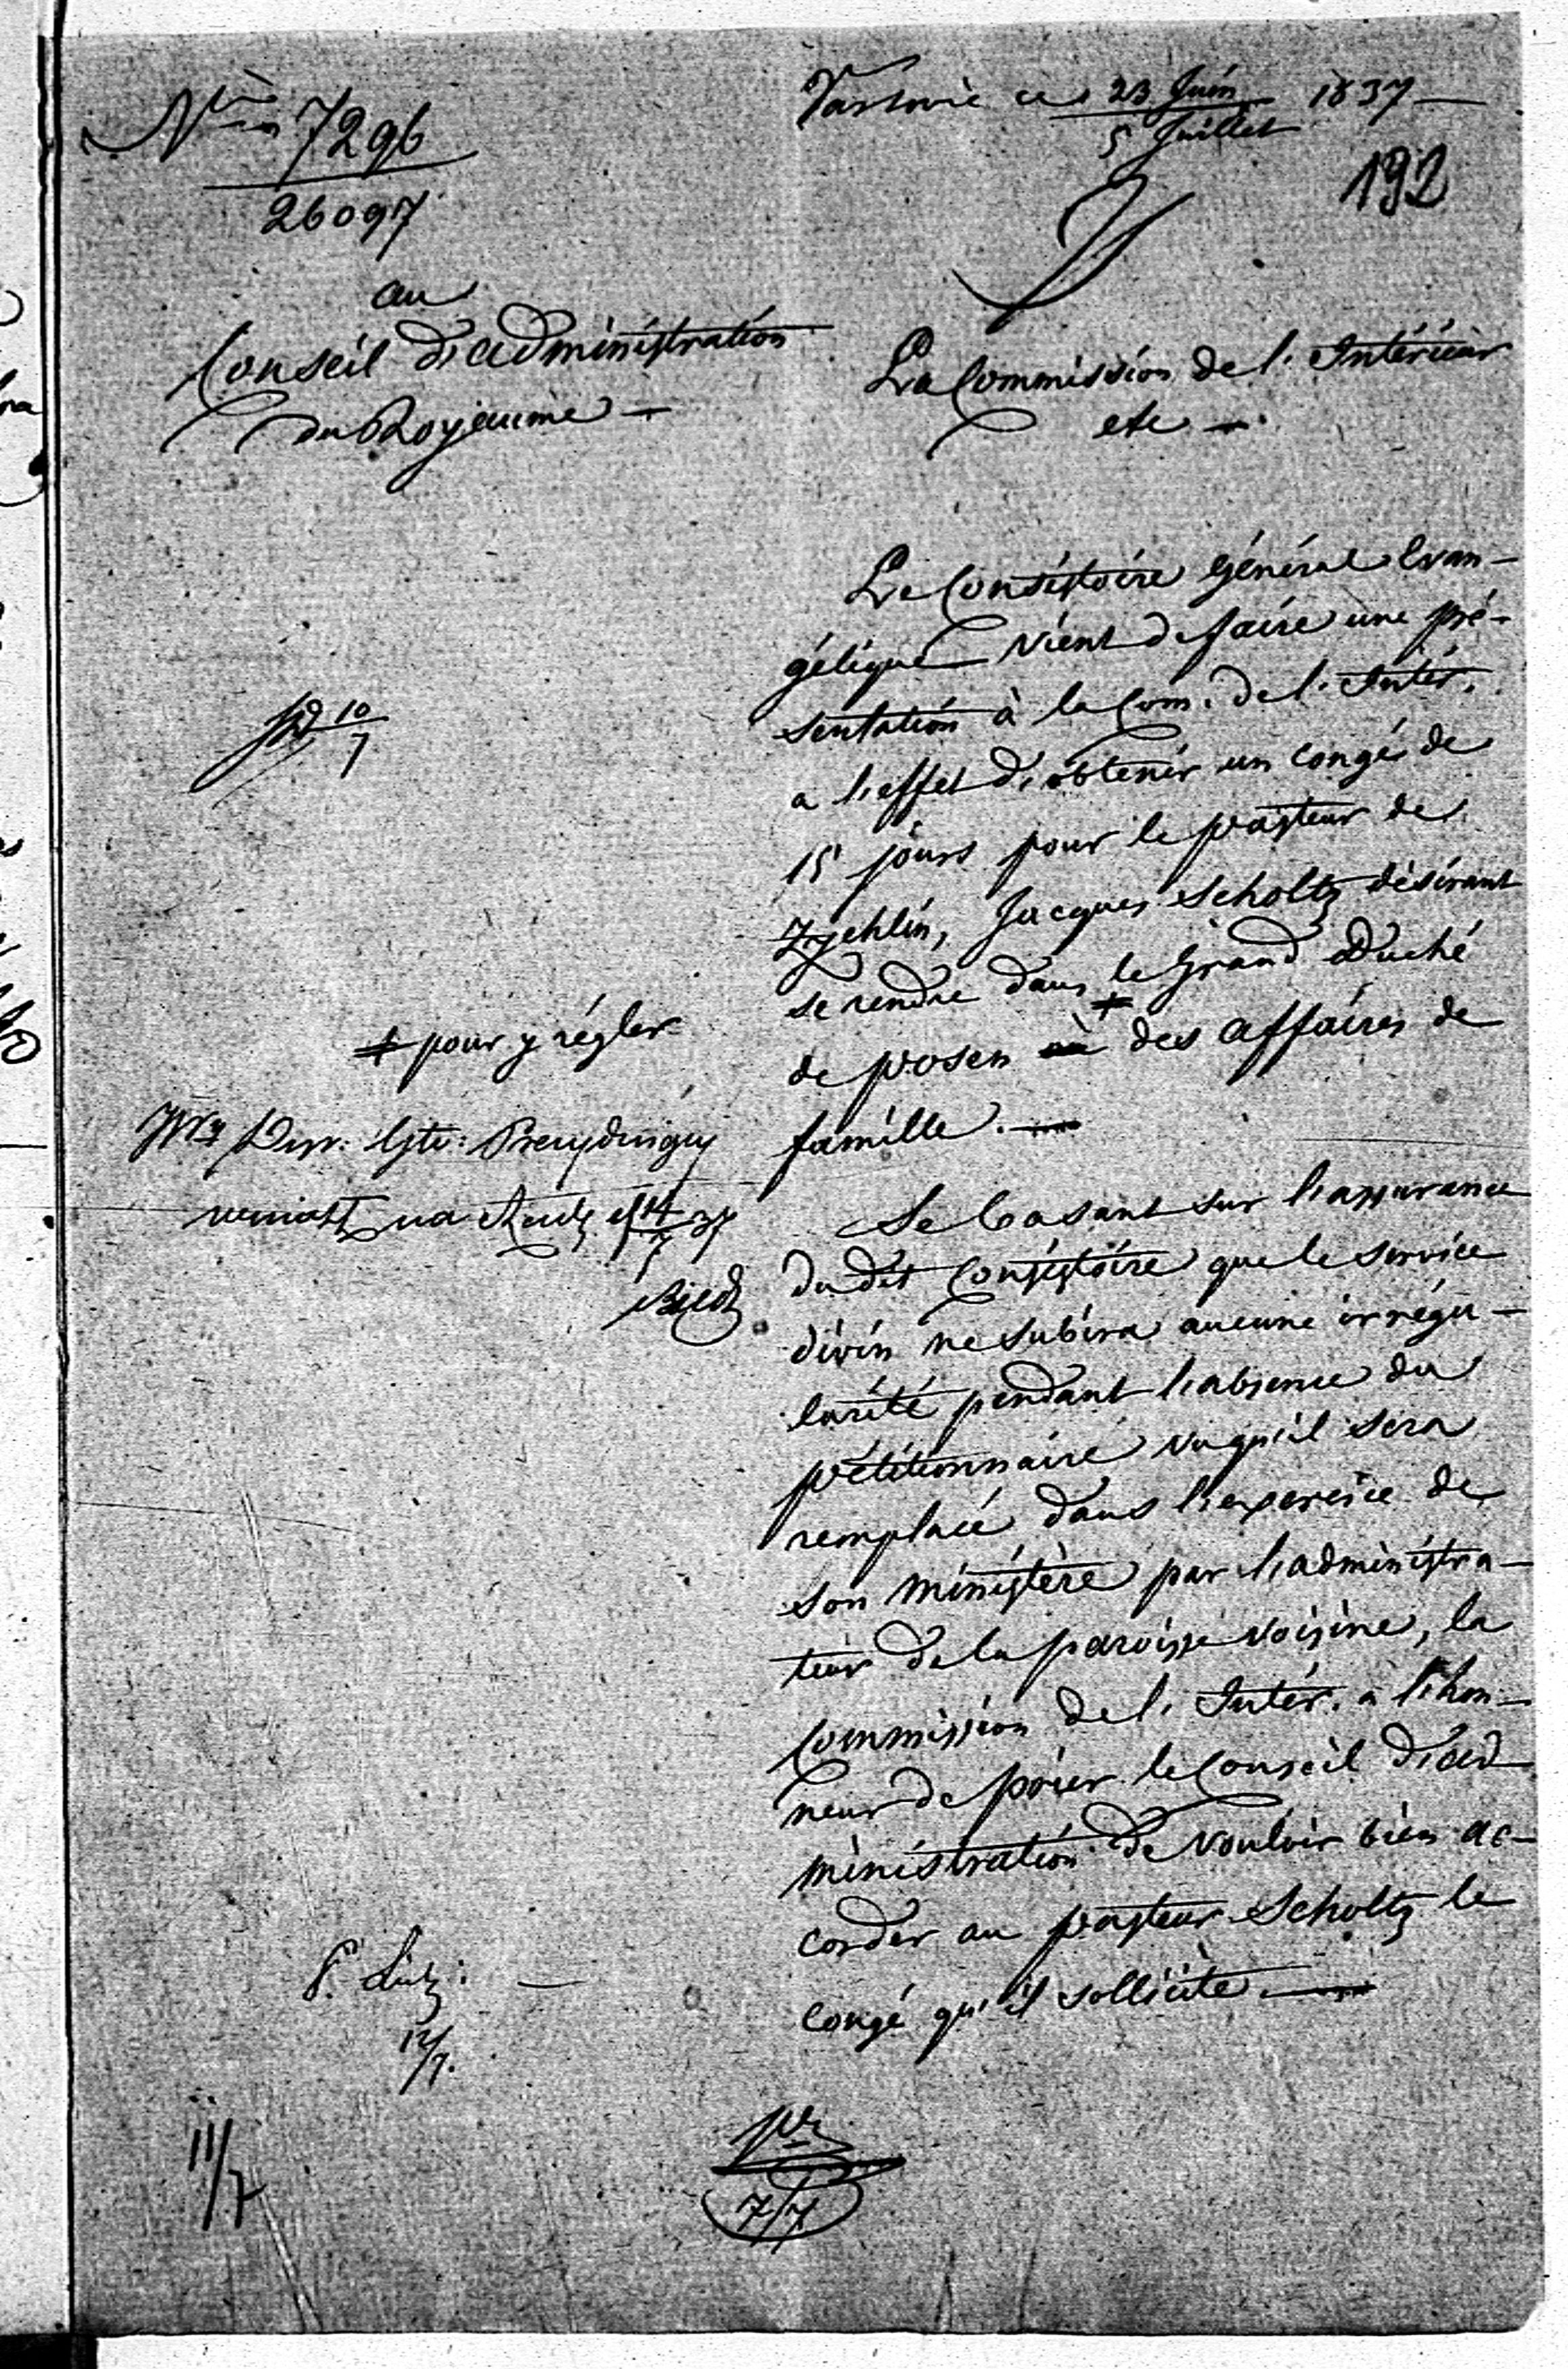 Nro 7296
26097
Varsovie ce 23 Juin 1837
5 Juillet
192
au
Conseil d'administration
du Royaume —
La Commission de l'Intérieur
etc —
Le Consistoire Général Evan-
gélique vient de faire une pré-
sentation à la Com. de l'Intér.
a l'effet d'obtenir un congé de
15 jours pour le pasteur de
Zychlin, Jacques Scholtz désirant
se rendre dans le Grand Duché
de Posen + des affaires de
famille. —
10
7
+ pour y régler
14
7 37
Se basant sur l'assurance
du dit Consistoire que le service
divin ne subira aucune irrégu-
larité pendant l'absence du
pétitionnaire vu qu'il sera
remplacé dans l'exercice de
son ministère par l'administra-
teur de la paroisse voisine, la
Commission de l'Intér. a l'hon-
neur de prier le Conseil d'ad-
ministration de vouloir bien ac-
corder au pasteur Scholtz le
congé qu'il sollicite —
12/7.
11/7
7/7